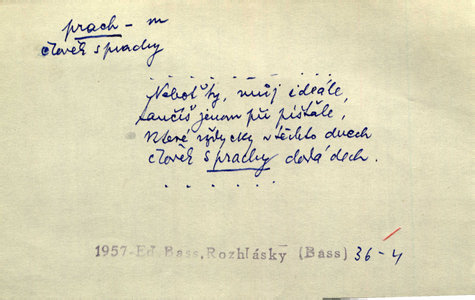 prach – m
člověk s prachy
. . . . . . . . . .
Neboť ty, můj ideále,
tančíš jenom při píšťale,
které vždycky v těchto dnech
člověk s prachy dodá dech.
. . . . . . .
1957-Ed.Bass,Rozhlásky (Bass) 36-4